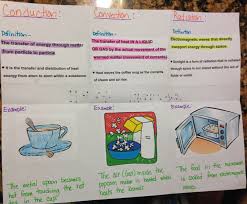 Conduction:
Definition-
The transfer of energy through matter
from particle to particle
• It is the transfer and distribution of heat
energy from atom to atom within a substance
Convection:
Definition-
The transfer of heat IN A LIQUID
OR GAS by the actual movement of the
warmed matter (movement of currents)
• Heat leaves the coffee cup as the currents
of steam and air rise
Radiation:
Definition-
Electromagnetic waves that directly
transport energy through space
• Sunlight is a form of radiation that is radiated
through space to our planet without the aid of
fluids or solids
Example:
The metal spoon becomes
hot from touching the hot
in the cup.
Example:
The air (gas) inside the
popcorn maker is heated when
heats the kernels.
Example:
The food in the microwave
is cooked from electromagnetic
waves.